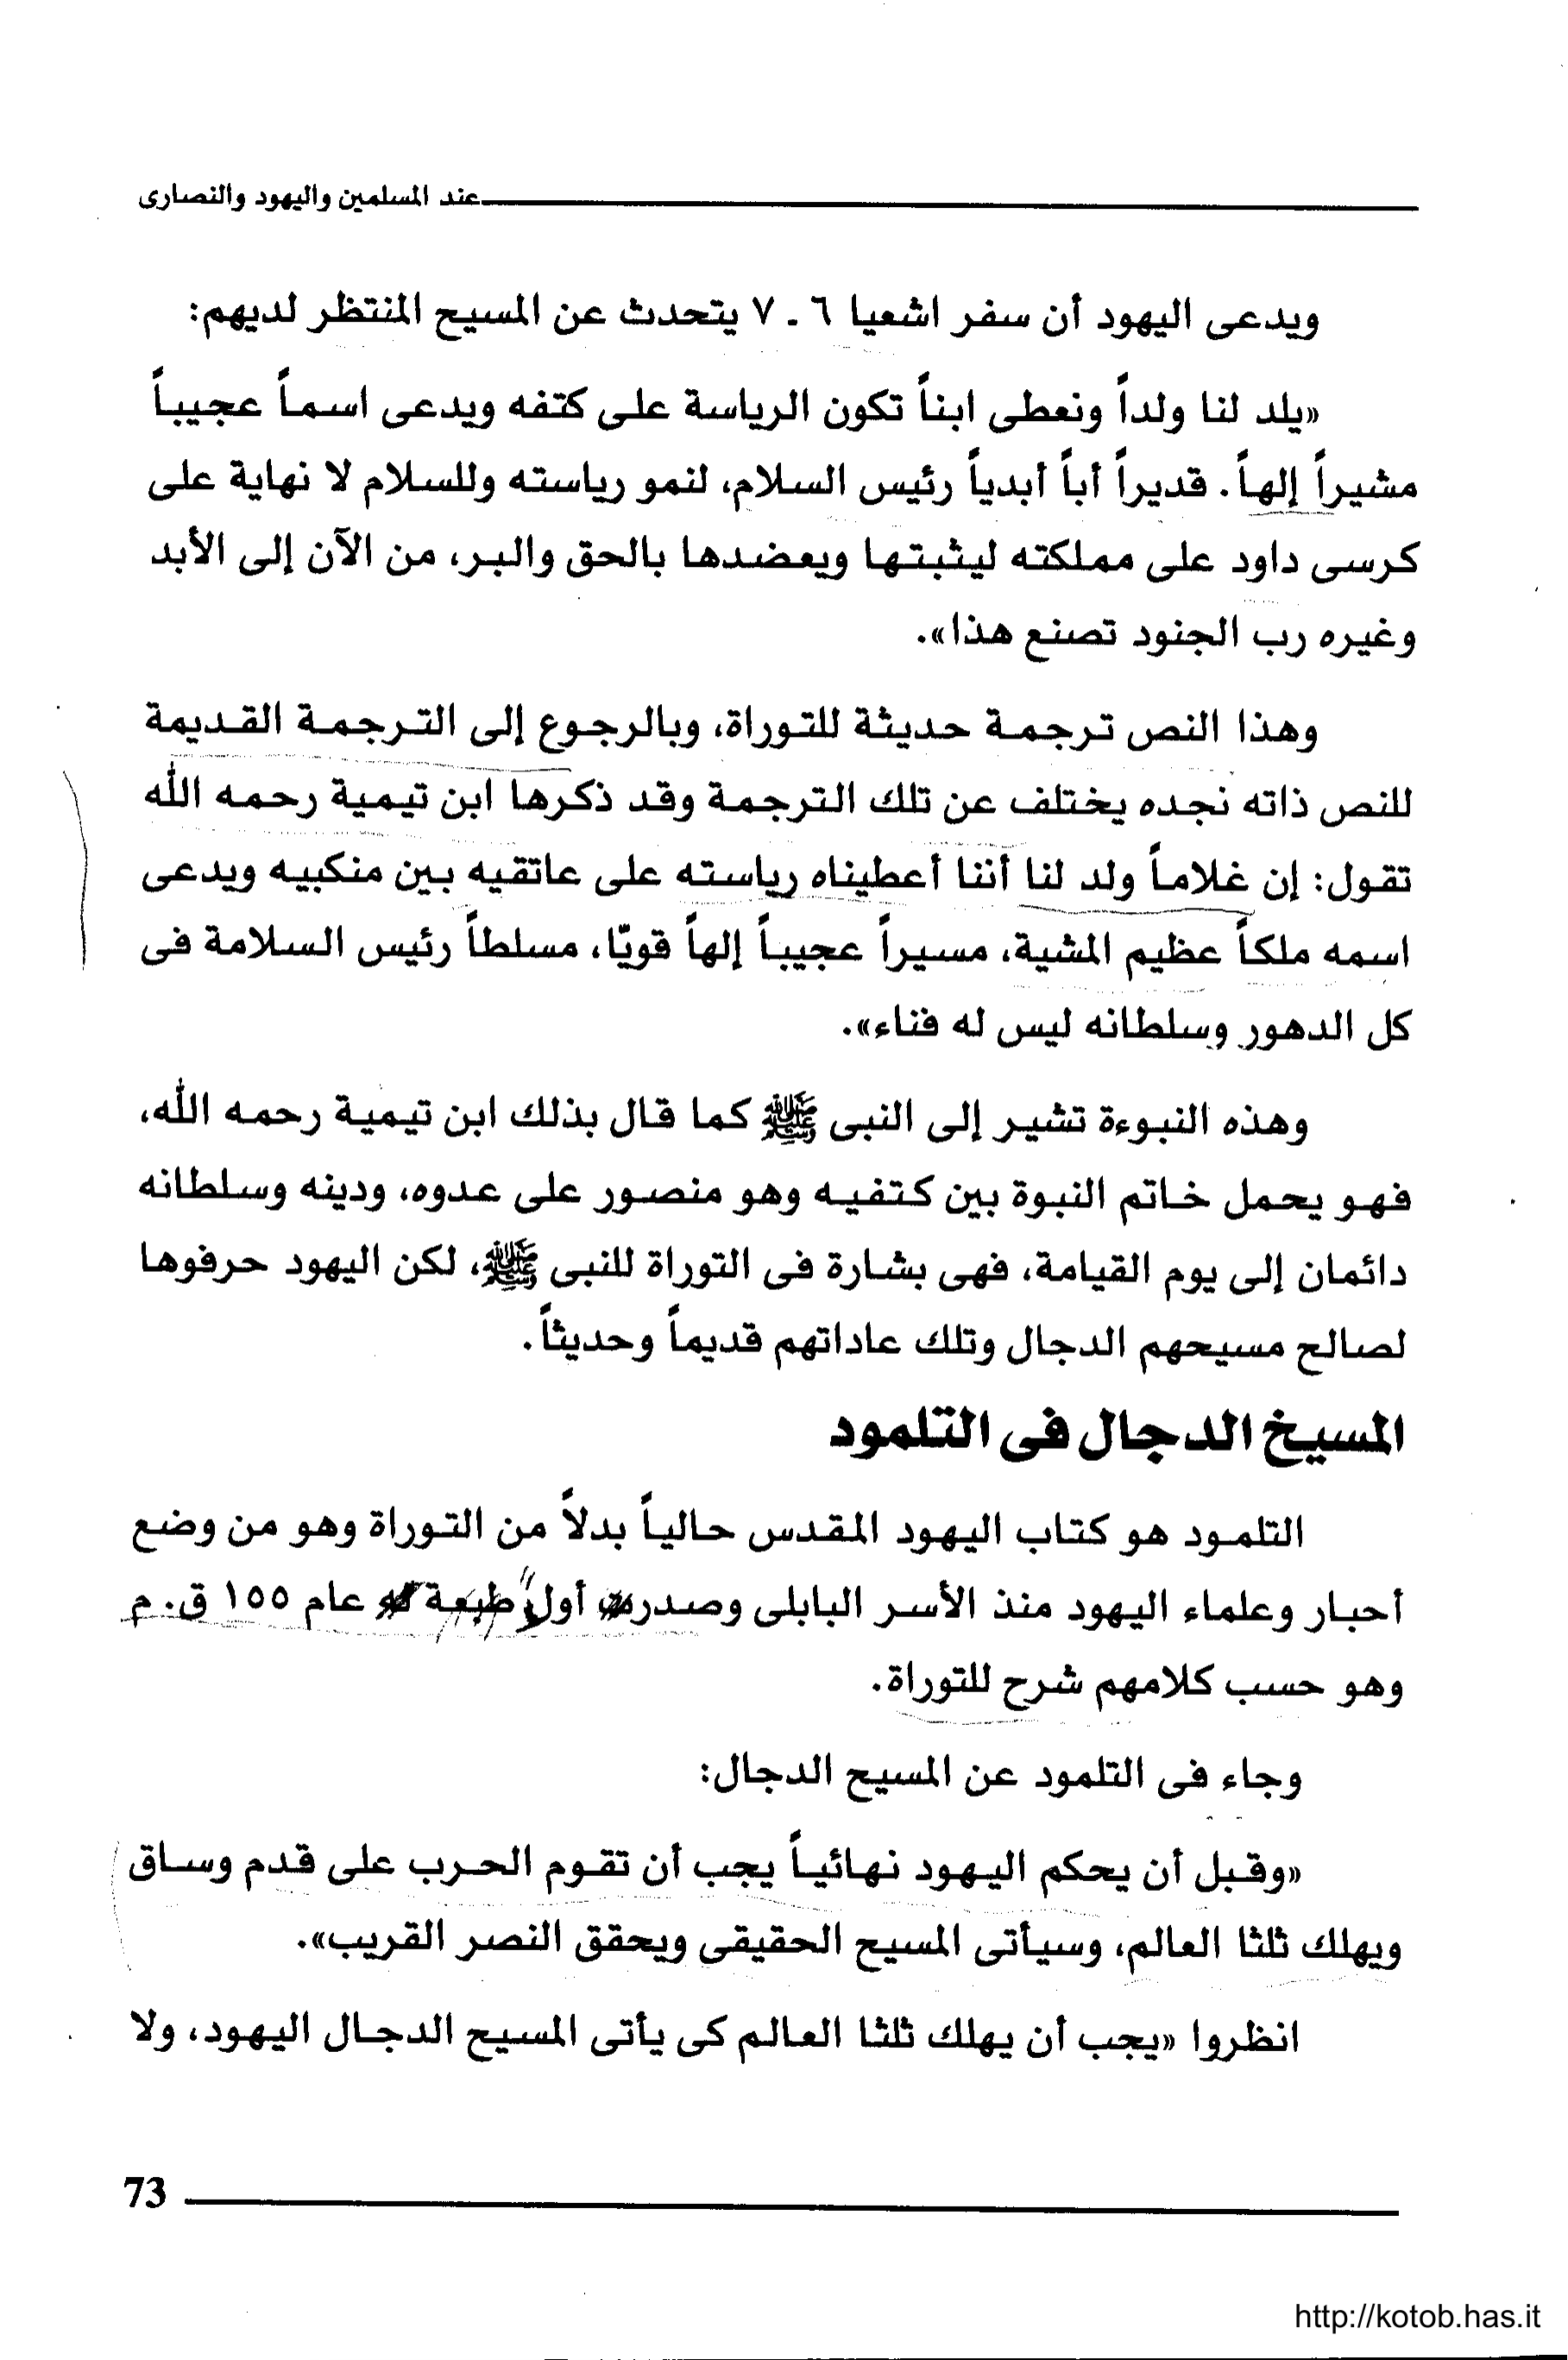 عند المسلمين واليهود والنصارى
ويدعى اليهود أن سفر اشعيا ٦ ـ ٧ يتحدث عن المسيح المنتظر لديهم:
«يلد لنا ولداً ونعطى ابناً تكون الرياسة على كتفه ويدعى اسماً عجيباً
مشيراً إلهاً. قديراً أباً أبدياً رئيس السلام، لنمو رياسته وللسلام لا نهاية على
كرسى داود على مملكته ليثبتها ويعضدها بالحق والبر، من الآن إلى الأبد
وغيره رب الجنود تصنع هذا».
وهذا النص ترجمة حديثة للتوراة، وبالرجوع إلى الترجمة القديمة
للنص ذاته نجده يختلف عن تلك الترجمة وقد ذكرها ابن تيمية رحمه الله
تقول: إن غلاماً ولد لنا أننا أعطيناه رياسته على عاتقيه بين منكبيه ويدعى
اسمه ملكاً عظيم المشية، مسيراً عجيباً إلهاً قويّا، مسلطاً رئيس السلامة فى
كل الدهور وسلطانه ليس له فناء».
وهذه النبوءة تشير إلى النبى ﷺ كما قال بذلك ابن تيمية رحمه الله،
فهو يحمل خاتم النبوة بين كتفيه وهو منصور على عدوه، ودينه وسلطانه
دائمان إلى يوم القيامة، فهى بشارة فى التوراة للنبى ﷺ، لكن اليهود حرفوها
لصالح مسيحهم الدجال وتلك عاداتهم قديماً وحديثاً.
المسيخ الدجال فى التلمود
التلمود هو كتاب اليهود المقدس حالياً بدلاً من التوراة وهو من وضع
أحبار وعلماء اليهود منذ الأسر البابلى وصدرت أول طبعة له عام ١٥٥ ق. م
وهو حسب كلامهم شرح للتوراة.
وجاء فى التلمود عن المسيح الدجال:
«وقبل أن يحكم اليهود نهائياً يجب أن تقوم الحرب على قدم وساق
ويهلك ثلثا العالم، وسيأتى المسيح الحقيقى ويحقق النصر القريب».
انظروا «يجب أن يهلك ثلثا العالم كى يأتى المسيح الدجال اليهود، ولا
73
http://kotob.has.it